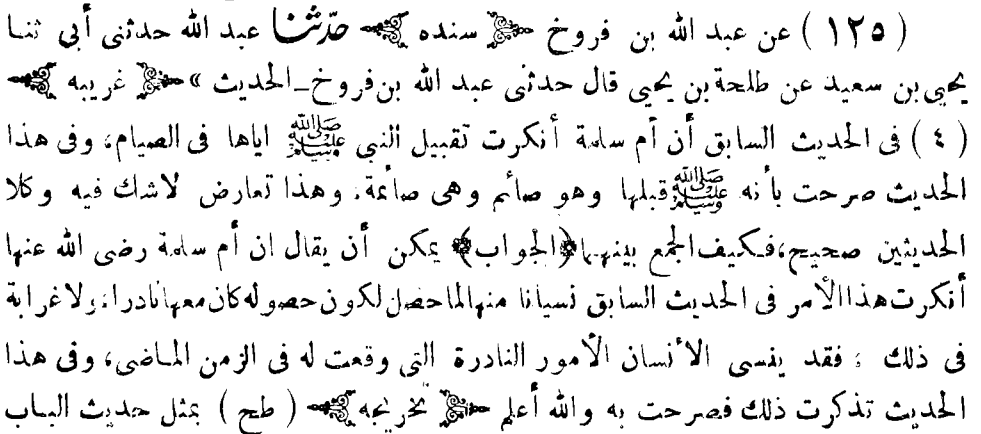 ( ١٢٥ ) عن عبد الله بن فروخ ﴿ سنده ﴾ حدّثنا عبد الله حدثنى أبى ثنا
يحيى بن سعيد عن طلحة بن يحيى قال حدثنى عبد الله بن فروخ ـ الحديث » ﴿ غريبه ﴾
( ٤ ) فى الحديث السابق أن أم سلمة أنكرت تقبيل النبى ﷺ اياها فى الصيام، وفى هذا
الحديث صرحت بأنه ﷺ قبلها وهو صائم وهى صائمة. وهذا تعارض لاشك فيه وكلا
الحديثين صحيح، فكيف الجمع بينهما ﴿ الجواب ﴾ يمكن أن يقال ان أم سلمة رضى الله عنها
أنكرت هذا الأمر فى الحديث السابق نسيانا منها لما حصل لكون حصوله كان معها نادرا، ولا غرابة
فى ذلك ، فقد ينسى الأنسان الأمور النادرة التى وقعت له فى الزمن الماضى، وفى هذا
الحديث تذكرت ذلك فصرحت به والله أعلم ﴿ تخريجه ﴾ ( طح ) بمثل حديث الباب